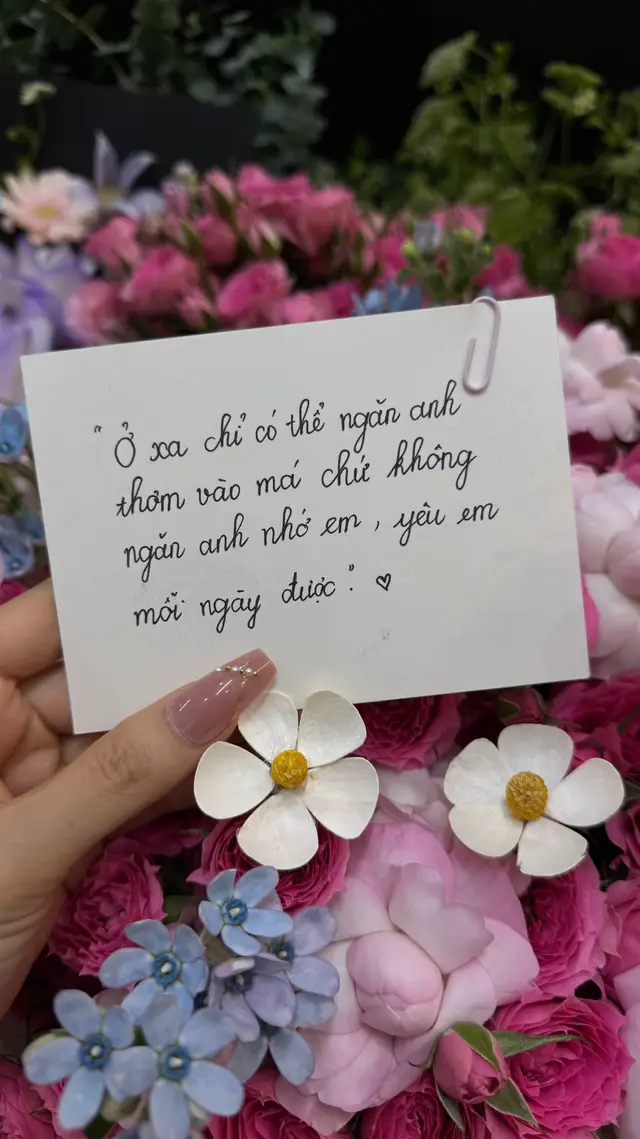 "Ở xa chỉ có thể ngăn anh
thơm vào má chứ không
ngăn anh nhớ em, yêu em
mỗi ngày được" ♡